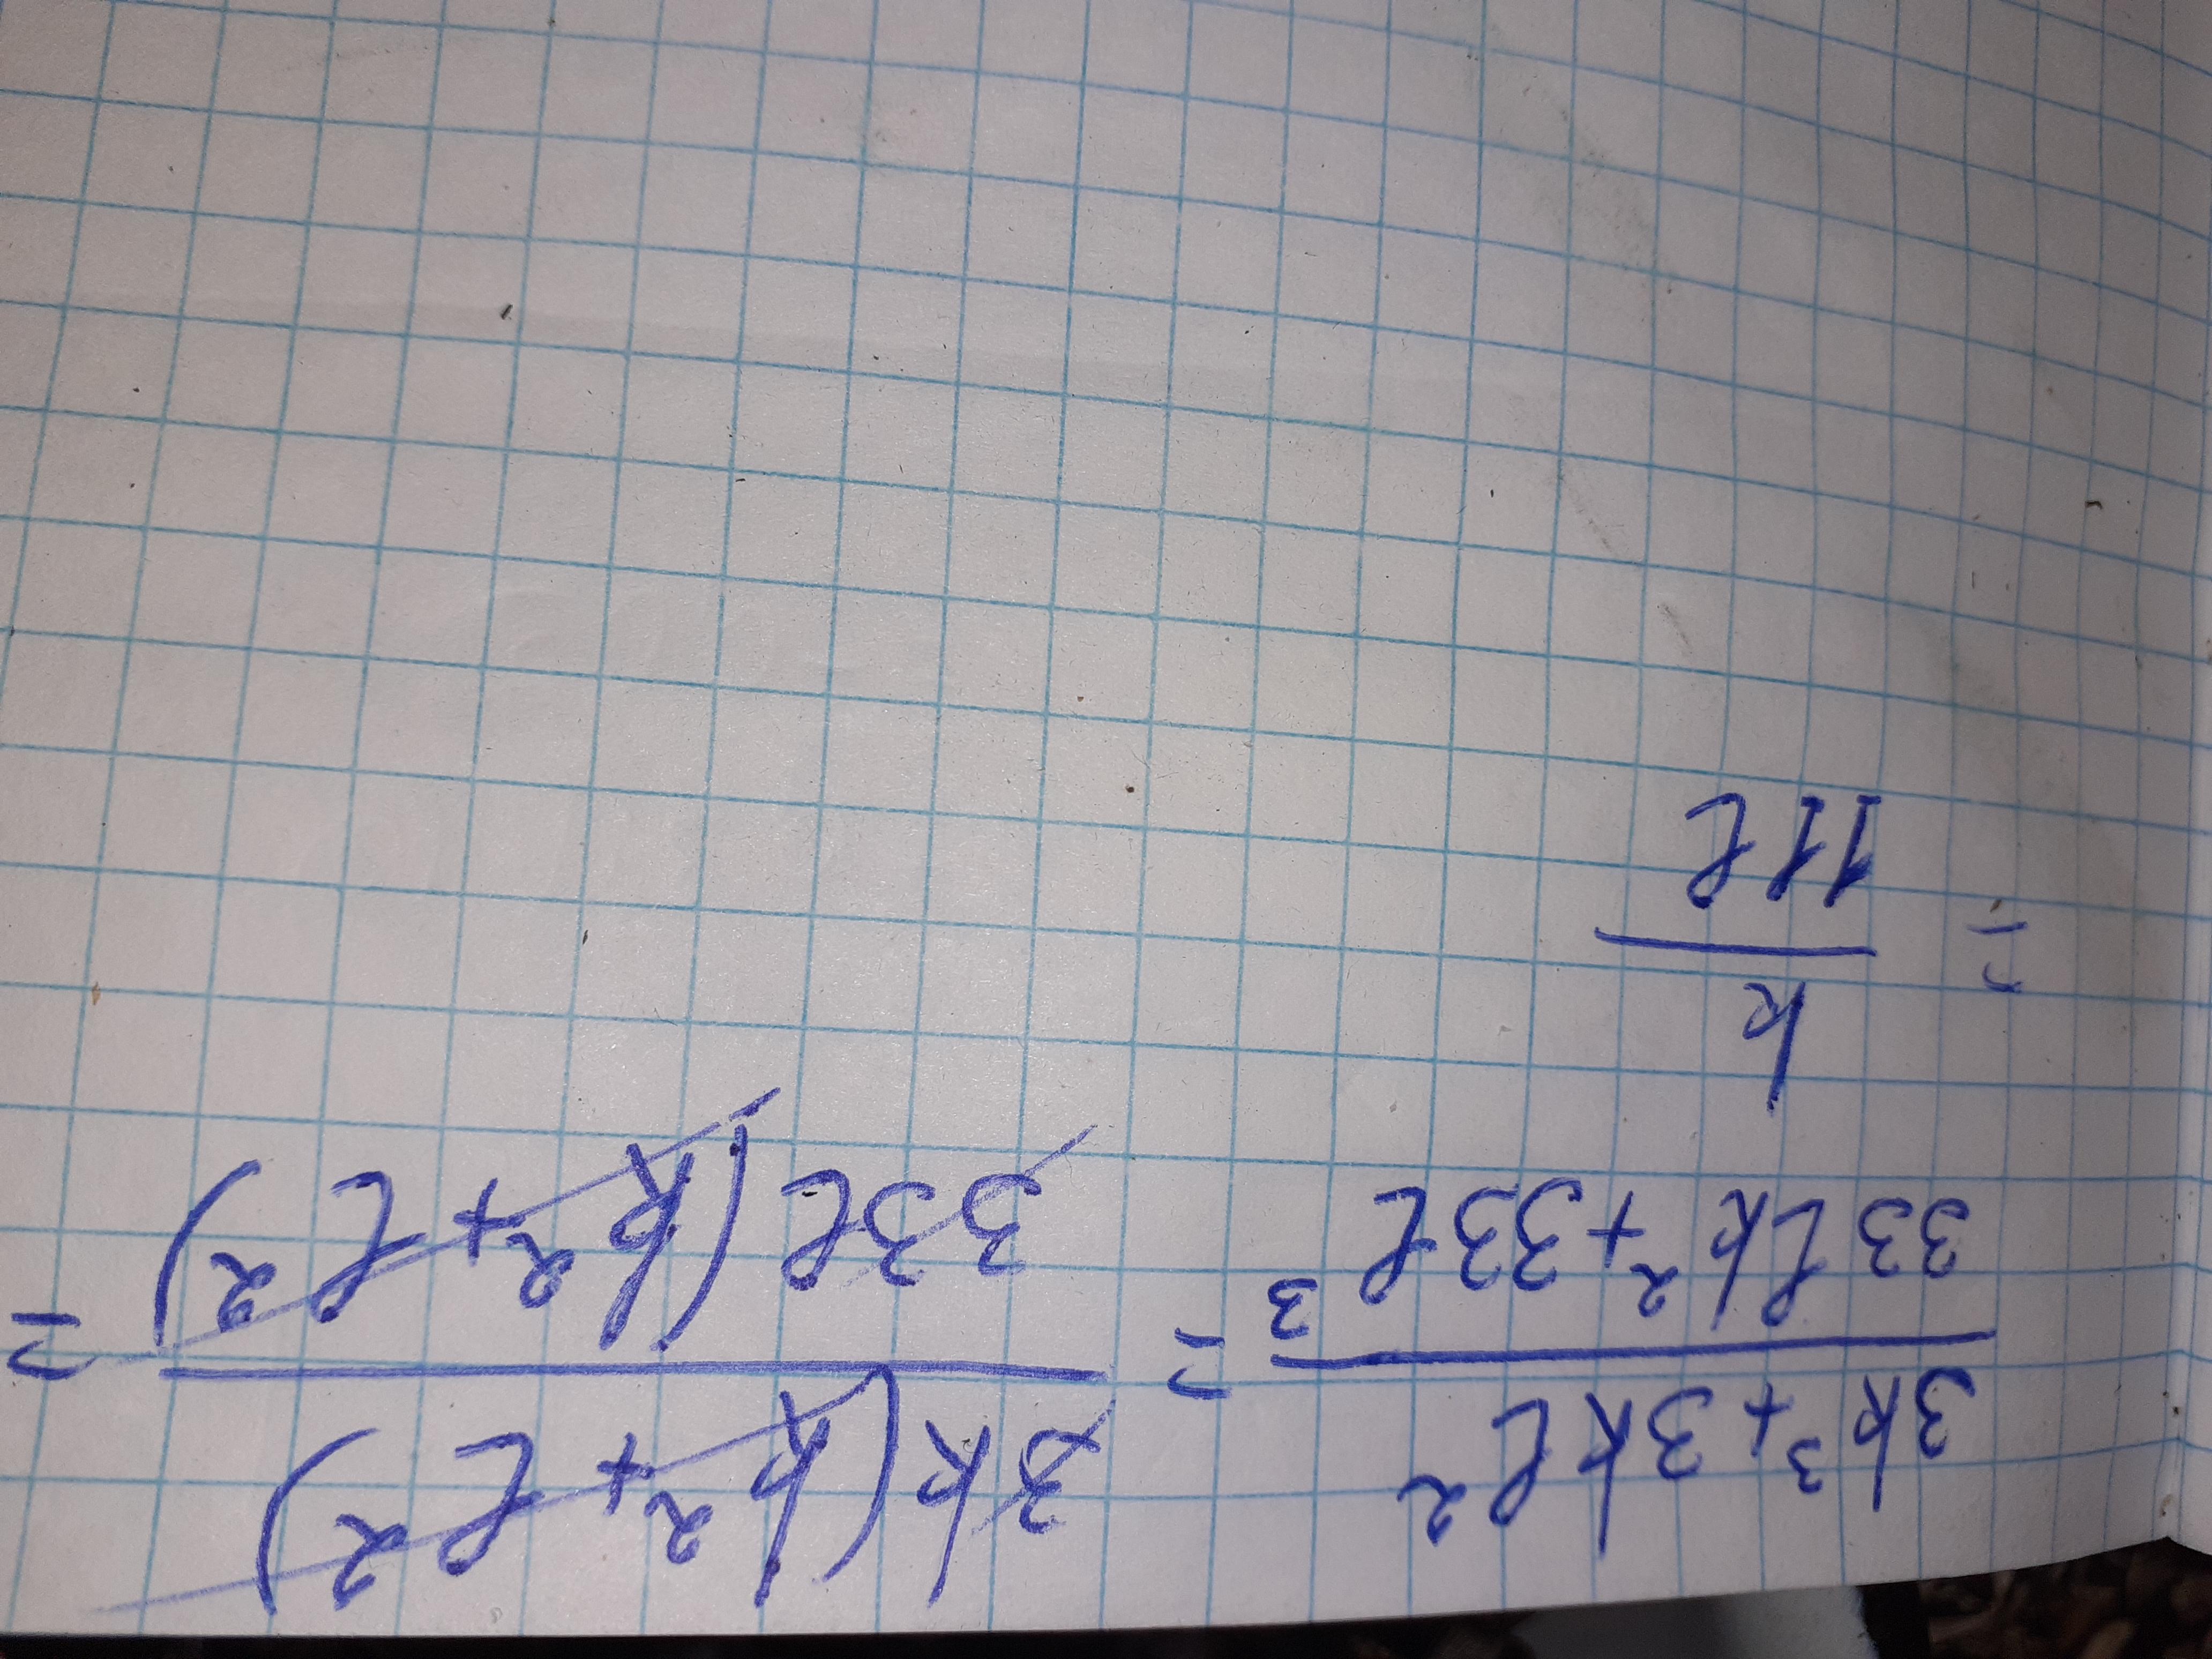 (3k³+3kl²)/(33lk²+33l³) = (3k(k²+l²))/(33l(k²+l²)) =
= k/(11l)